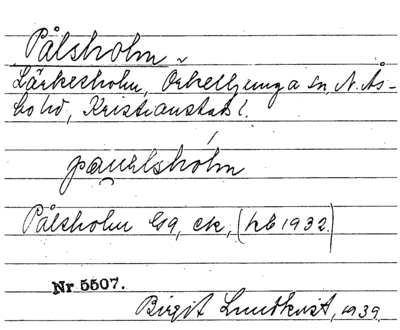 Pålsholm
Lärkesholm, Örkelljunga sn, N. Ås-
bo hd, Kristianstads l.
Pålsholm Gg, ek, (hb 1932)
Nr 5507.
Birgit Lundkvist, 1939.